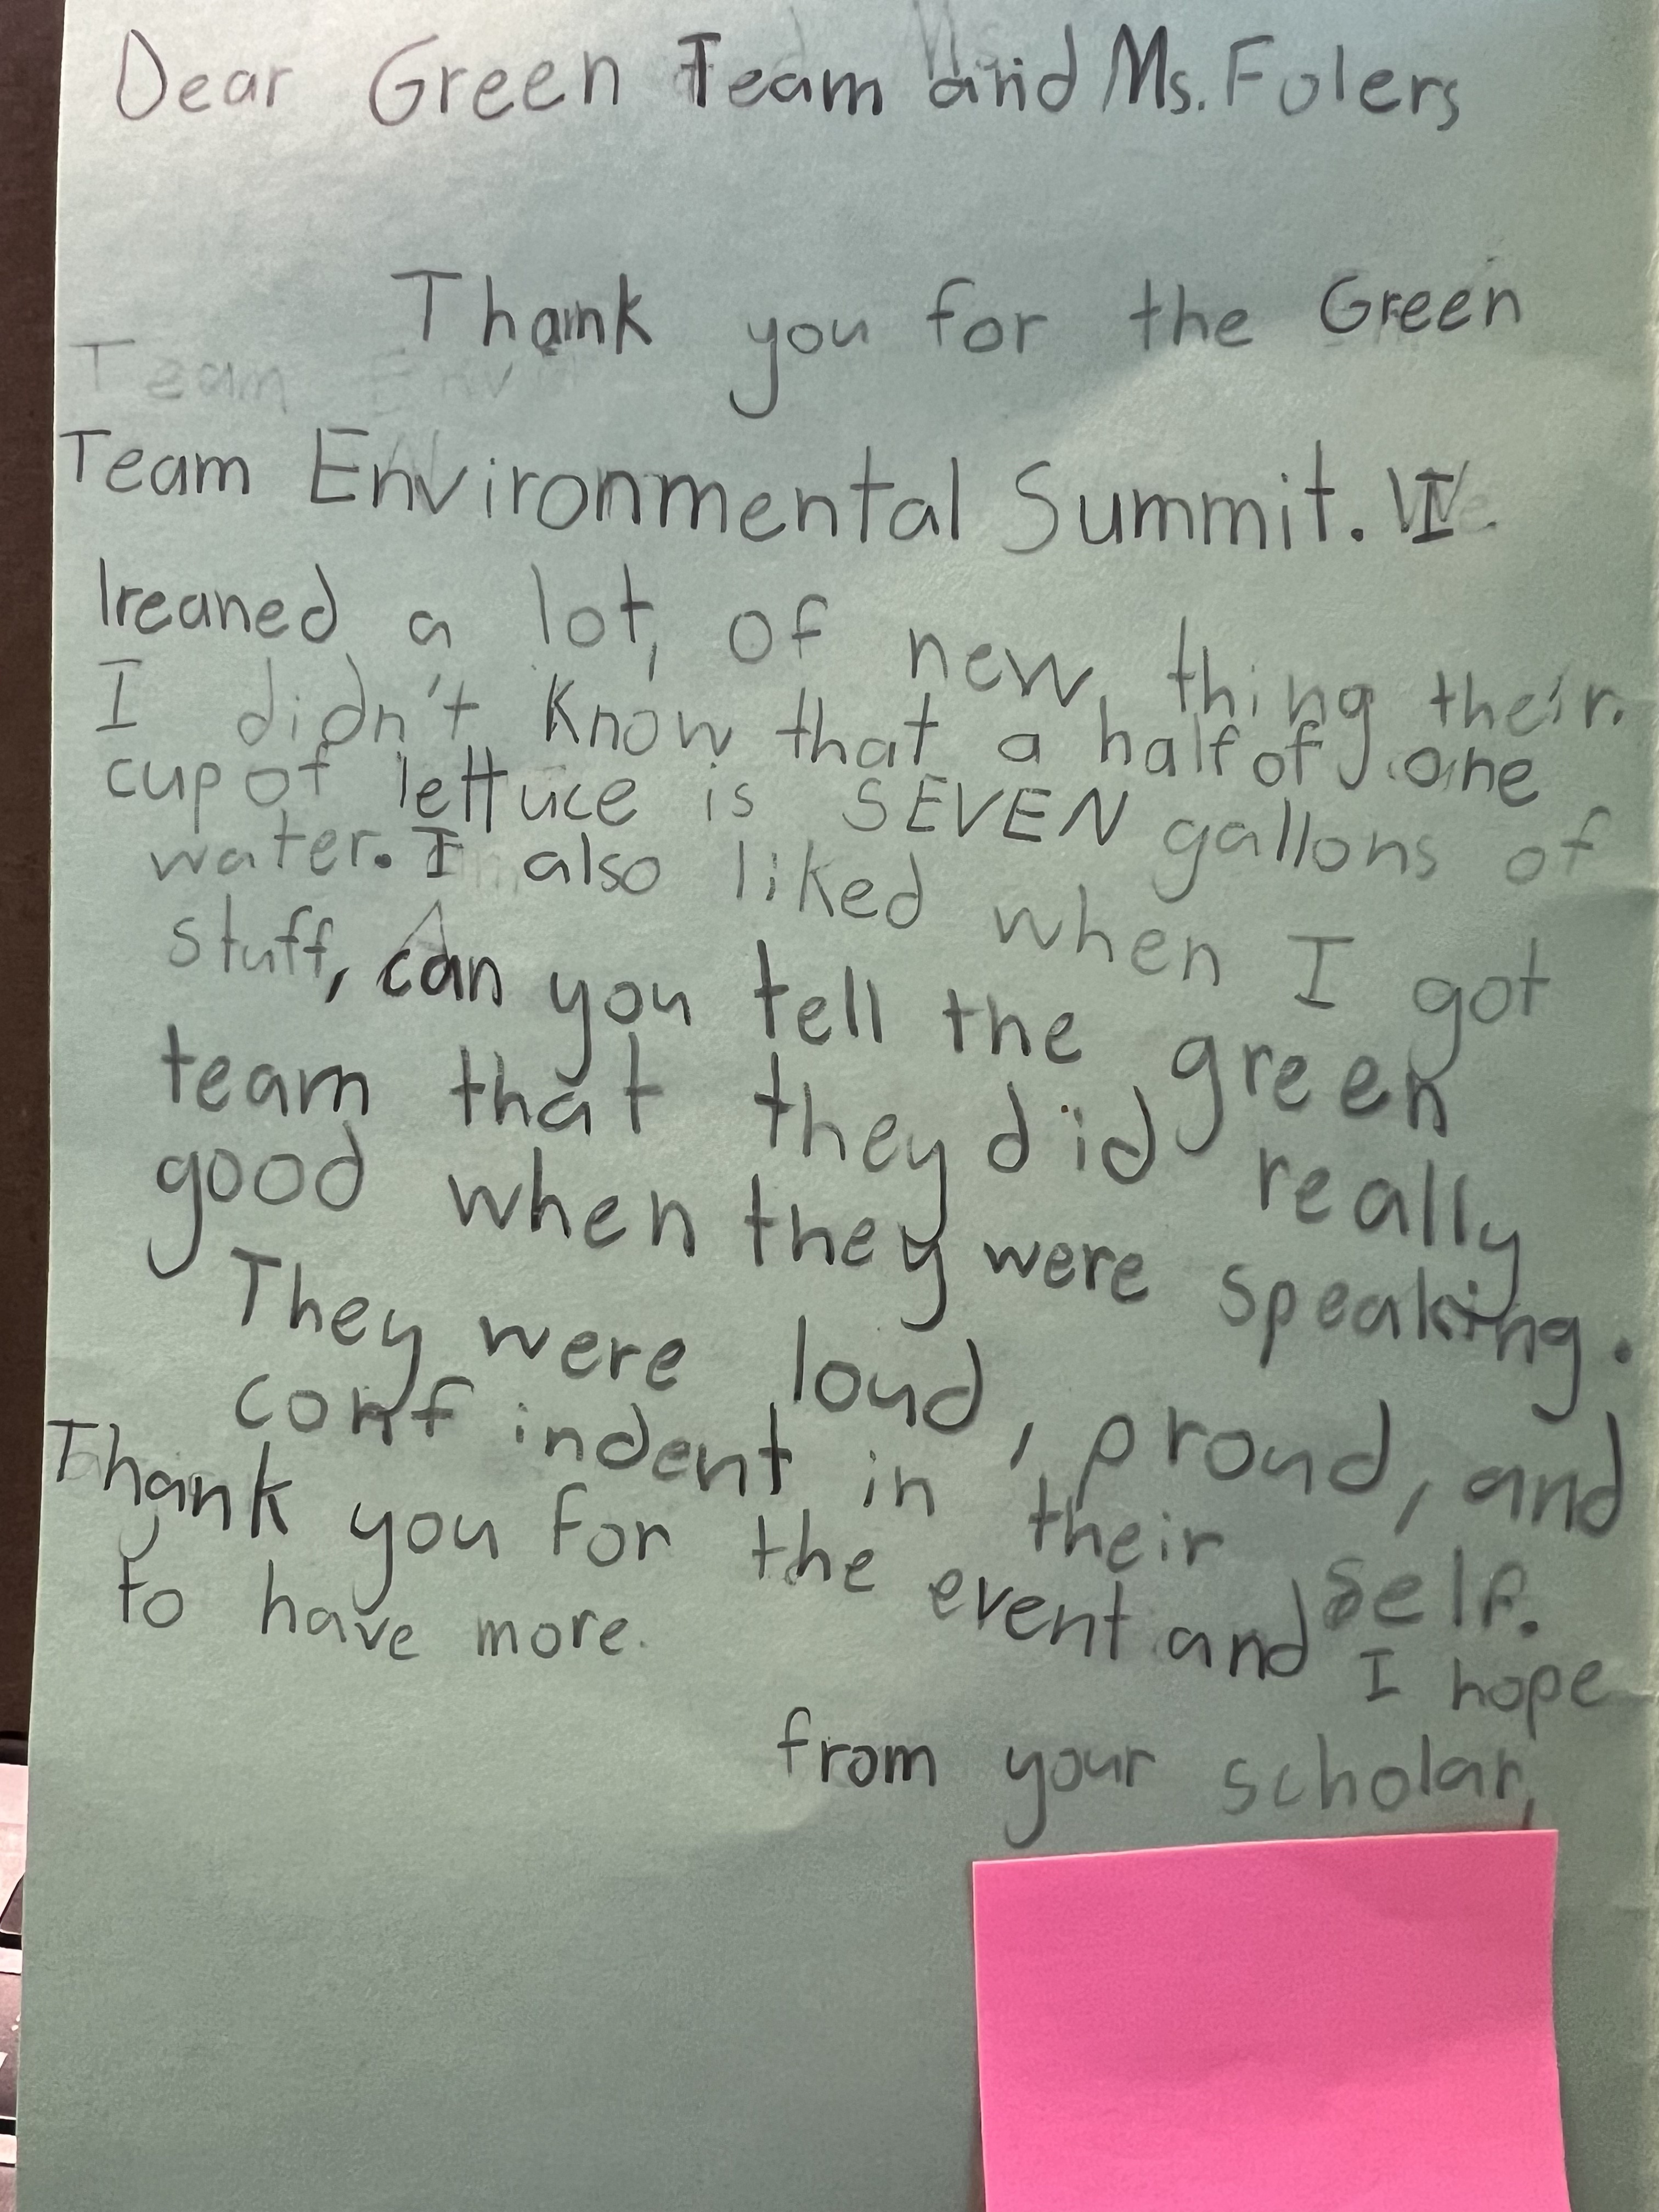 Dear Green Team and Ms. Folers
Thank you for the Green
Team Environmental Summit. I
lreaned a lot, of new, thing their.
I didn't know that a half of one
cup of lettuce is SEVEN gallons of
water. I also liked when I got
stuff, can you tell the green
team that they did really
good when they were speaking.
They were loud, proud, and
confindent in their self.
Thank you for the event and I hope
to have more.
from your scholar,